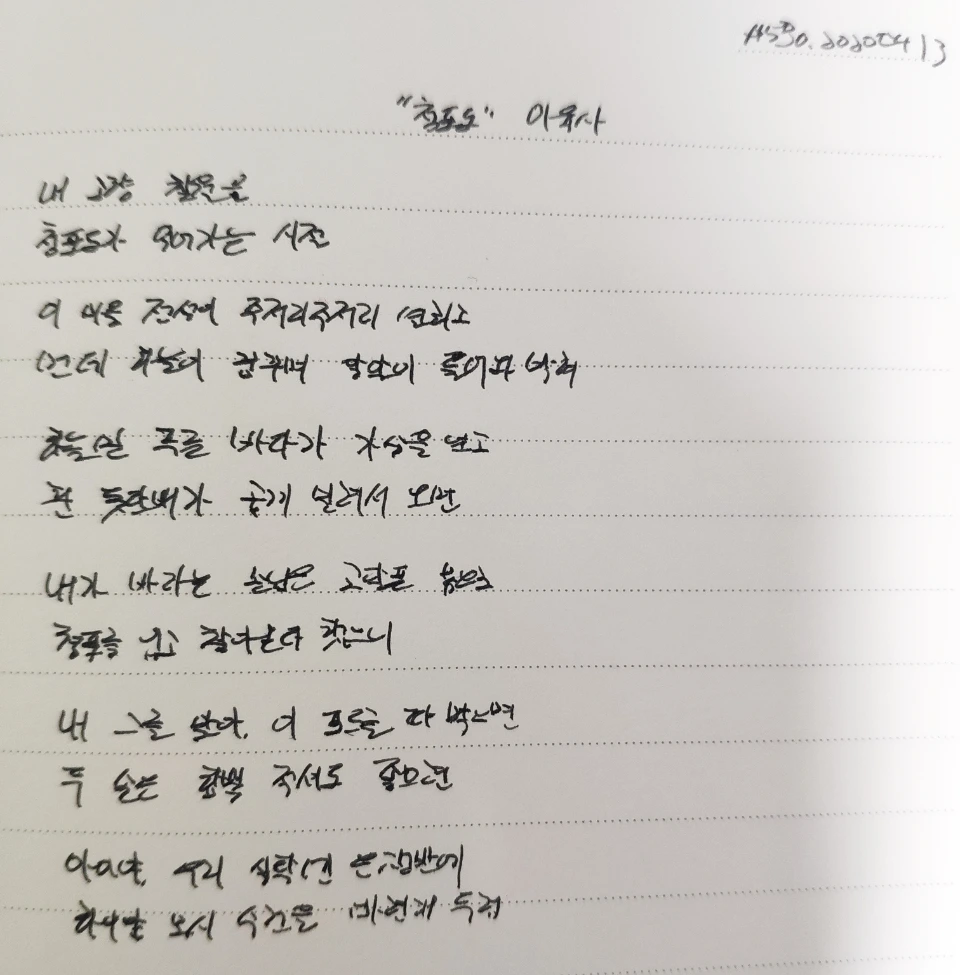 "청포도" 이육사
내 고장 칠월은
청포도가 익어가는 시절
이 마을 전설이 주저리주저리 열리고
먼데 하늘이 꿈꾸며 알알이 들어와 박혀
하늘밑 푸른 바다가 가슴을 열고
흰 돛단배가 곱게 밀려서 오면
내가 바라는 손님은 고달픈 몸으로
청포를 입고 찾아온다 했으니
내 그를 맞아, 이 포도를 따 먹으면
두 손은 함뿍 적셔도 좋으련
아이야, 우리 식탁엔 은쟁반에
하이얀 모시 수건을 마련해 두렴